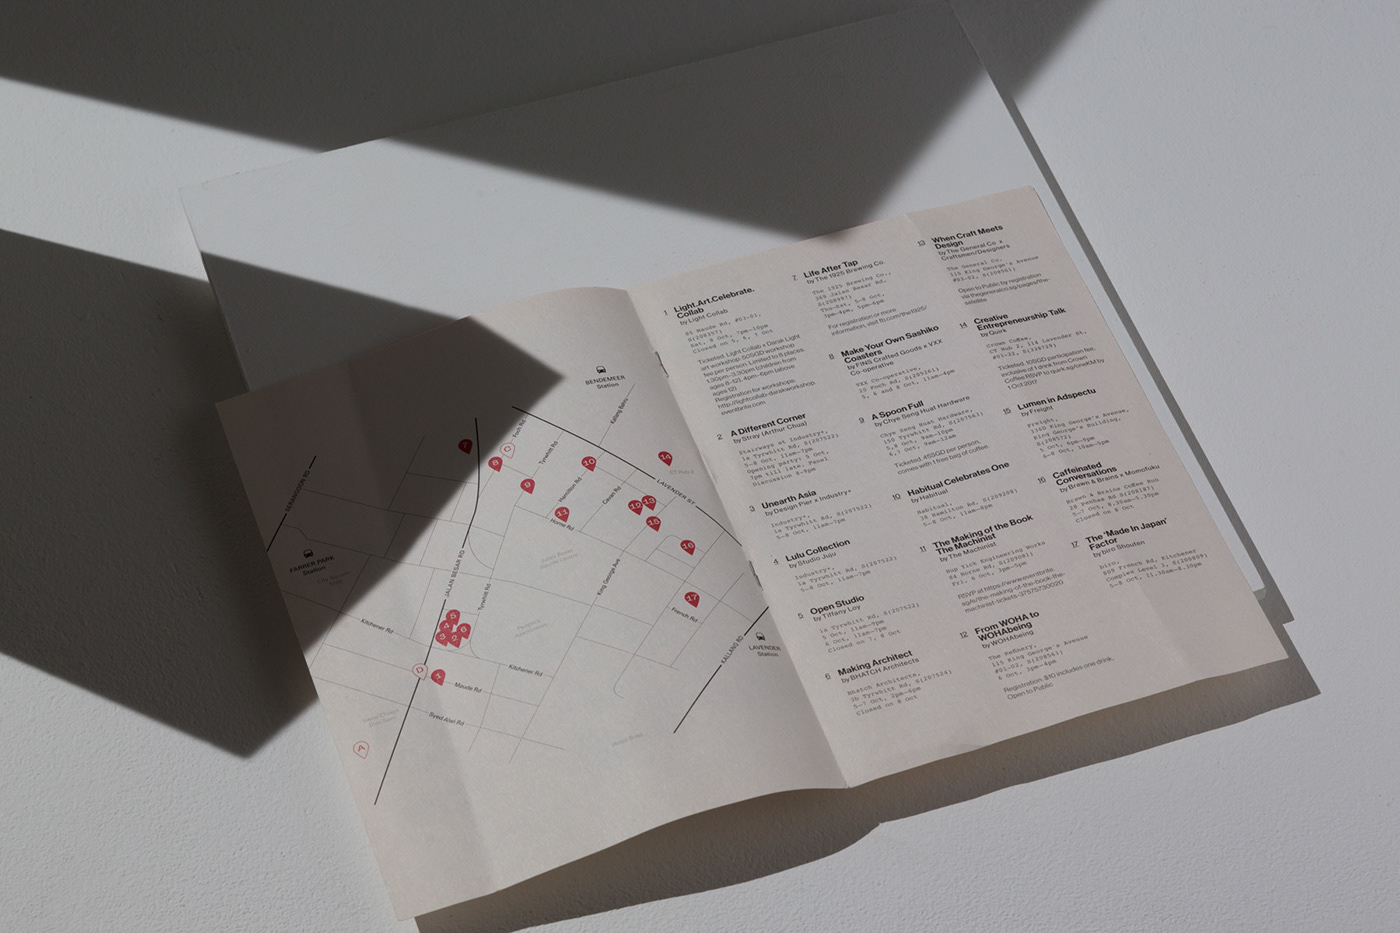 BENDEMEER
Station
Kallang Bahru
Foch Rd
Tyrwhitt Rd
Hamilton Rd
Cavan Rd
Horne Rd
LAVENDER ST
CT Hub 2
SERANGOON RD
FARRER PARK
Station
JALAN BESAR RD
Tyrwhitt Rd
King George's Ave
French Rd
KALLANG RD
LAVENDER
Station
Kitchener Rd
Kitchener Rd
Maude Rd
Syed Alwi Rd
8
9
10
11
12
13
14
15
16
17
1
Light.Art.Celebrate.
Collab
by Light Collab
85 Maude Rd, #03-01,
S(208357)
Sat, 8 Oct, 7pm–10pm
Closed on 5, 6, 7 Oct
Ticketed. Light Collab x Darak Light
art workshop. 50SGD workshop
fee per person. Limited to 8 places.
1.30pm–3.30pm (children from
ages 8–12), 4pm–6pm (above
ages 12)
Registration for workshops:
http://lightcollab-darakworkshop.
eventbrite.com
2
A Different Corner
by Stray (Arthur Chua)
Stairways at Industry+,
1a Tyrwhitt Rd, S(207522)
5–8 Oct, 11am–7pm
Opening party: 5 Oct,
7pm till late. Panel
Discussion 8–9pm
3
Unearth Asia
by Design Pier x Industry+
Industry+,
1a Tyrwhitt Rd, S(207522)
5–8 Oct, 11am–7pm
4
Lulu Collection
by Studio Juju
Industry+,
1a Tyrwhitt Rd, S(207522)
5–8 Oct, 11am–7pm
5
Open Studio
by Tiffany Loy
1a Tyrwhitt Rd, S(207522)
5 Oct, 11am–9pm
6 Oct, 11am–7pm
Closed on 7, 8 Oct
6
Making Architect
by BHATCH Architects
Bhatch Architects,
1b Tyrwhitt Rd, S(207524)
5–7 Oct, 2pm–6pm
Closed on 8 Oct
7
Life After Tap
by The 1925 Brewing Co.
The 1925 Brewing Co.,
369 Jalan Besar Rd,
S(208997)
Thu–Sat, 5–8 Oct,
3pm–4pm, 5pm–6pm
For registration or more
information, visit fb.com/the1925/
8
Make Your Own Sashiko
Coasters
by FINS Crafted Goods x VXX
Co-operative
VXX Co-operative,
20 Foch Rd, S(209261)
5, 6 and 8 Oct, 11am–4pm
9
A Spoon Full
by Chye Seng Huat Hardware
Chye Seng Huat Hardware,
150 Tyrwhitt Rd, S(207563)
5,8 Oct, 9am–10pm
6,7 Oct, 9am–12am
Ticketed. 45SGD per person,
comes with 1 free bag of coffee
10
Habitual Celebrates One
by Habitual
Habitual,
36 Hamilton Rd, S(209209)
5–8 Oct, 11am–8pm
11
The Making of the Book
The Machinist
by The Machinist
Hup Yick Engineering Works
64 Horne Rd, S(209081)
Fri, 6 Oct, 3pm–5pm
RSVP at https://www.eventbrite.
sg/e/the-making-of-the-book-the-
machinist-tickets-37575730020
12
From WOHA to
WOHAbeing
by WOHAbeing
The Refinery,
115 King George's Avenue
#01-02, S(208561)
6 Oct, 3pm–4pm
Registration: $10 includes one drink.
Open to Public
13
When Craft Meets
Design
by The General Co x
Craftsmen/Designers
The General Co.
115 King George's Avenue
#01-02, S(208561)
Open to Public by registration
via thegeneralco.sg/pages/the-
satellite
14
Creative
Entrepreneurship Talk
by Quirk
Crown Coffee,
CT Hub 2, 114 Lavender St,
#01-22, S(338729)
Ticketed. 10SGD participation fee,
inclusive of 1 drink from Crown
Coffee RSVP to quirk.sg/oneKM by
1 Oct 2017
15
Lumen in Adspectu
by Freight
Freight,
1160 King George's Avenue,
King George's Building,
S(208572)
5 Oct, 6pm–9pm
5–8 Oct, 10am–5pm
16
Caffeinated
Conversations
by Brawn & Brains x Momofuku
Brawn & Brains Coffee Roa
28 Penhas Rd S(208187)
5–7 Oct, 8.30am–5.30pm
Closed on 8 Oct
17
The 'Made In Japan'
Factor
by biro Shouten
biro,
809 French Rd, Kitchener
Complex Level 3, S(200809)
5–8 Oct, 11.30am–8.30pm